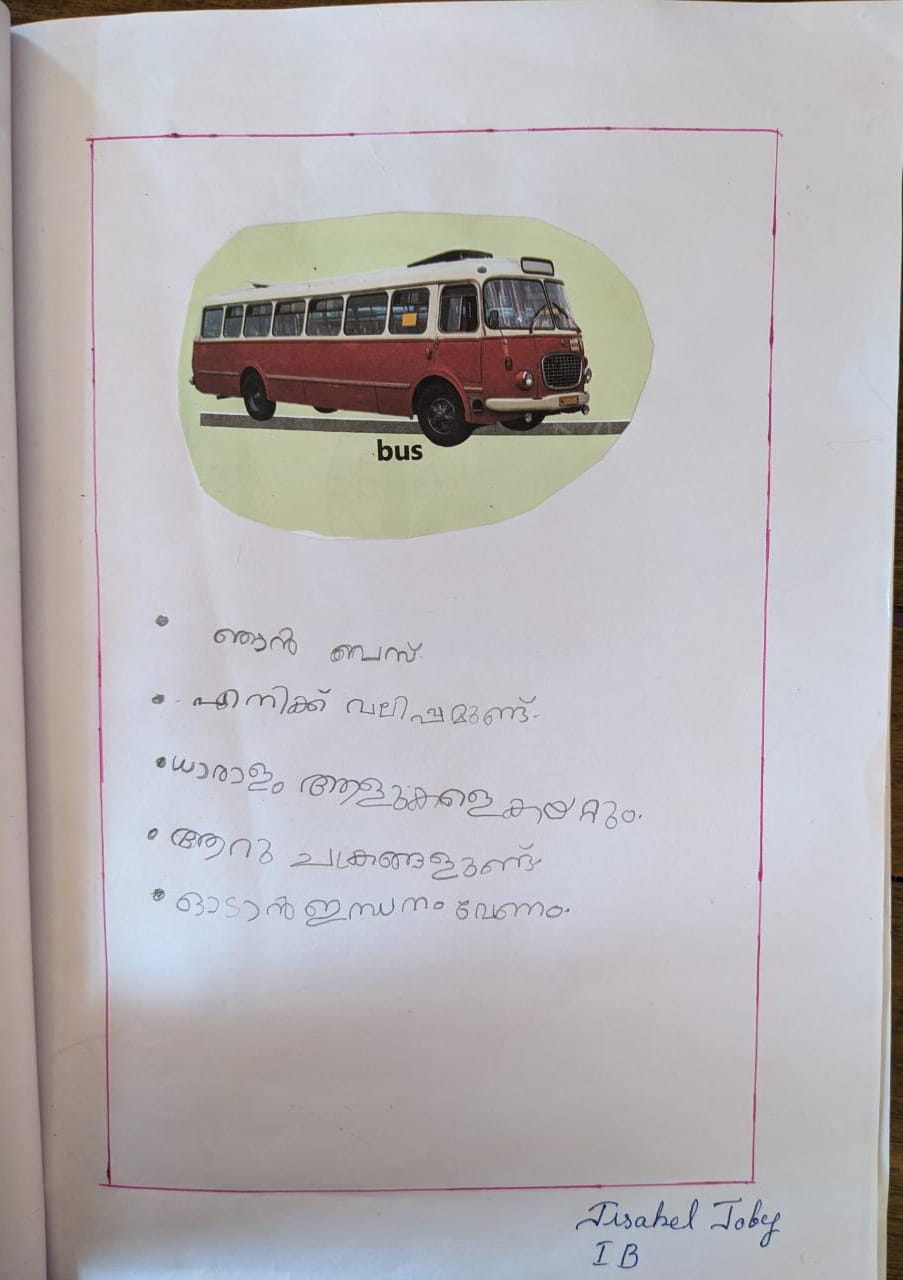 bus
• ഞാൻ ബസ്
• എനിക്ക് വലിപ്പമുണ്ട്.
• ധാരാളം ആളുകളെ കയറ്റും.
• ആറു ചക്രങ്ങളുണ്ട്
• ഓടാൻ ഇന്ധനം വേണം.
Jisabel Joby
I B